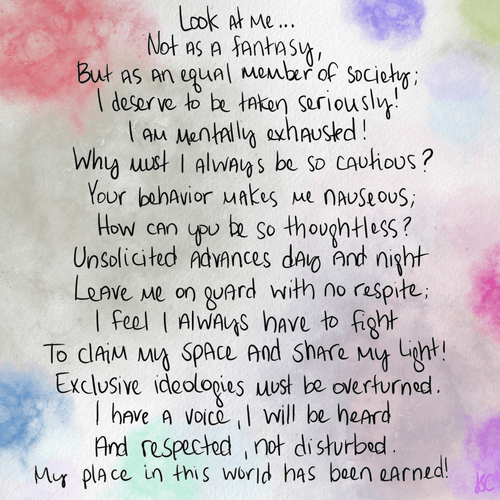 Look at me...
Not as a fantasy,
But as an equal member of society;
I deserve to be taken seriously!
I am mentally exhausted!
Why must I always be so cautious?
Your behavior makes me nauseous;
How can you be so thoughtless?
Unsolicited advances day and night
Leave me on guard with no respite;
I feel I always have to fight
To claim my space and share my light!
Exclusive ideologies must be overturned.
I have a voice, I will be heard
And respected, not disturbed.
My place in this world has been earned!